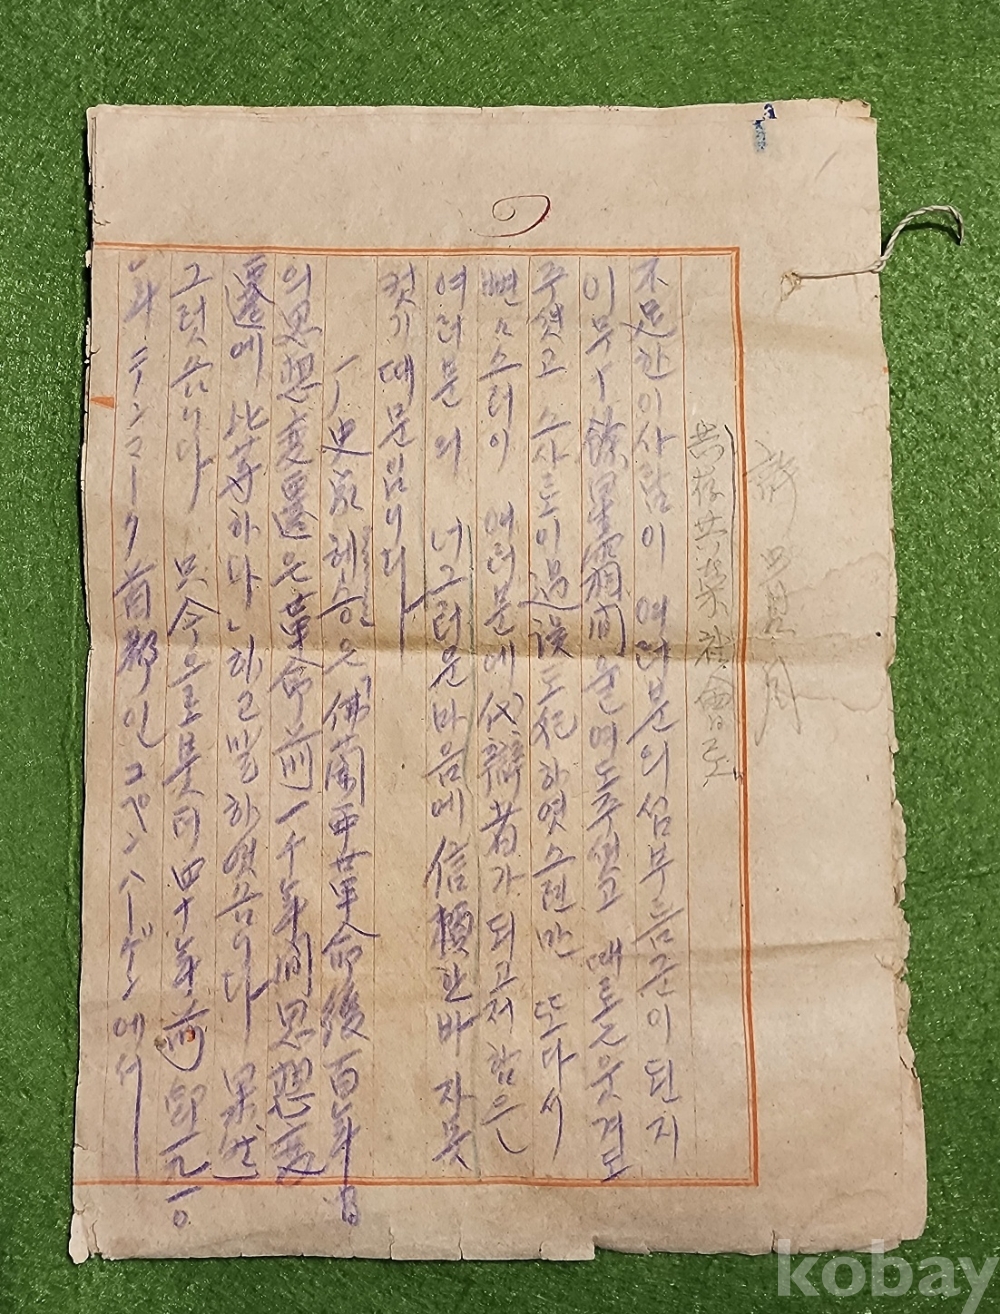 共存共榮社會로
不足한 이사람이 여러분의 심부름군이 된지
이무 十餘星霜間을 여도주셧고 때로는 웃겨도
주셧고 스사로이 過誤도 犯하엿스련만 또다시
뻔々스러이 여러분에 代辯者가 되고저 함은
여러분의 너그러운 바음에 信賴한바 자못
컷기 때문임니다
史家 헤승은 「佛蘭西革命後百年間
의 思想變遷은 革命前一千年間思想變
遷에 比等하다」라고 말하엿슴니다 果然
그럿슴니다 只今으로붓터 四十年前 即一九一〇
年 デンマーク首都인 コペンハーゲン에서
kobay